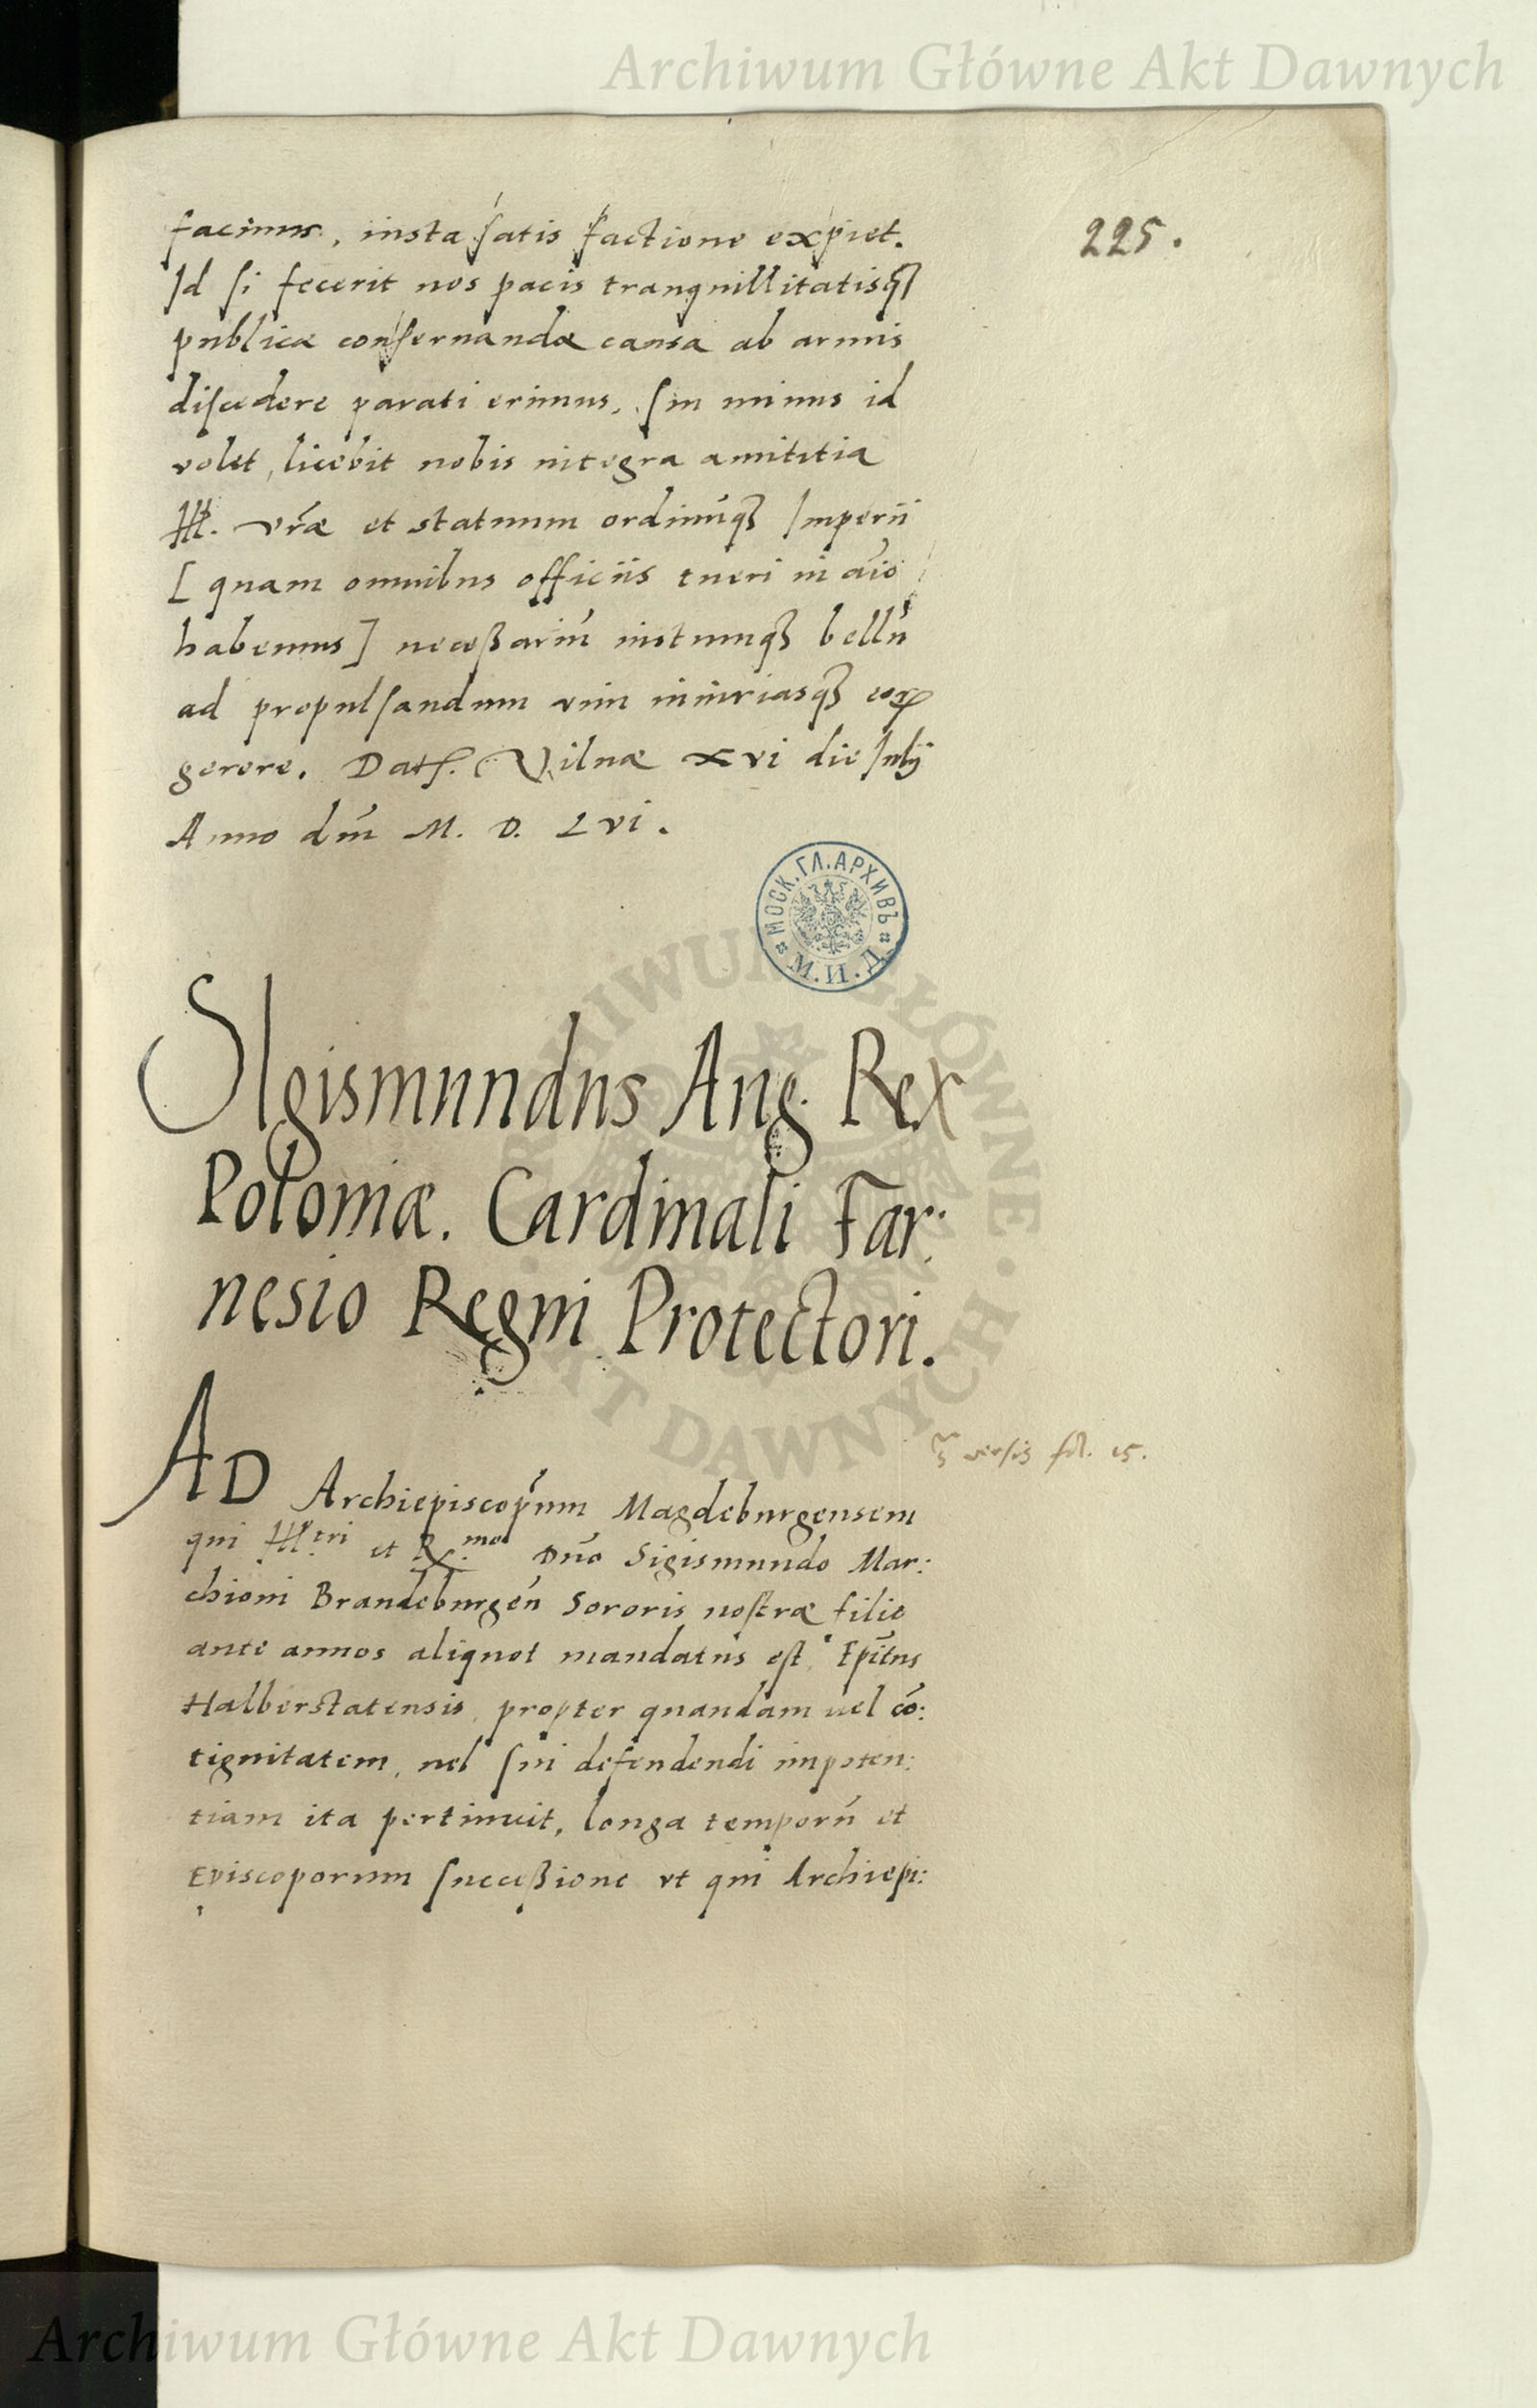 Archiwum Główne Akt Dawnych
225.
facinus, iusta satis factione expiet.
Id si fecerit nos pacis tranquillitatisq3
publicæ conseruandæ causa ab armis
discedere parati erimus. Sin minus id
volet, licebit nobis integra amititia
Ill. vræ et statuum ordinuq3 Imperii
[ quam omnibus officiis tueri in aio
habemus ] necessariu iustumq3 bellu
ad propulsandum vim iniuriasq3 eoꝝ
gerere. Dat. Vilnæ xvi die Iulij
Anno dni M. D. Lvi.
МОСК. ГЛ. АРХИВЪ М. И. Д.
SIgismundus Aug. Rex
Poloniæ. Cardinali Far:
nesio Regni Protectori.
AD Archiepiscopum Magdeburgensem
qui Ill.tri et R.mo Dno Sigismundo Mar:
chioni Brandeburgen Sororis nostræ filio
ante annos aliquot mandatus est. Epatus
Halberstatensis, propter quandam uel co:
tignitatem, uel sui defendendi impoten:
tiam ita pertinuit, longa temporu et
Episcoporum successione vt qui Archiepi:
versis fol. 15.
ARCHIWUM GŁÓWNE AKT DAWNYCH
Archiwum Główne Akt Dawnych